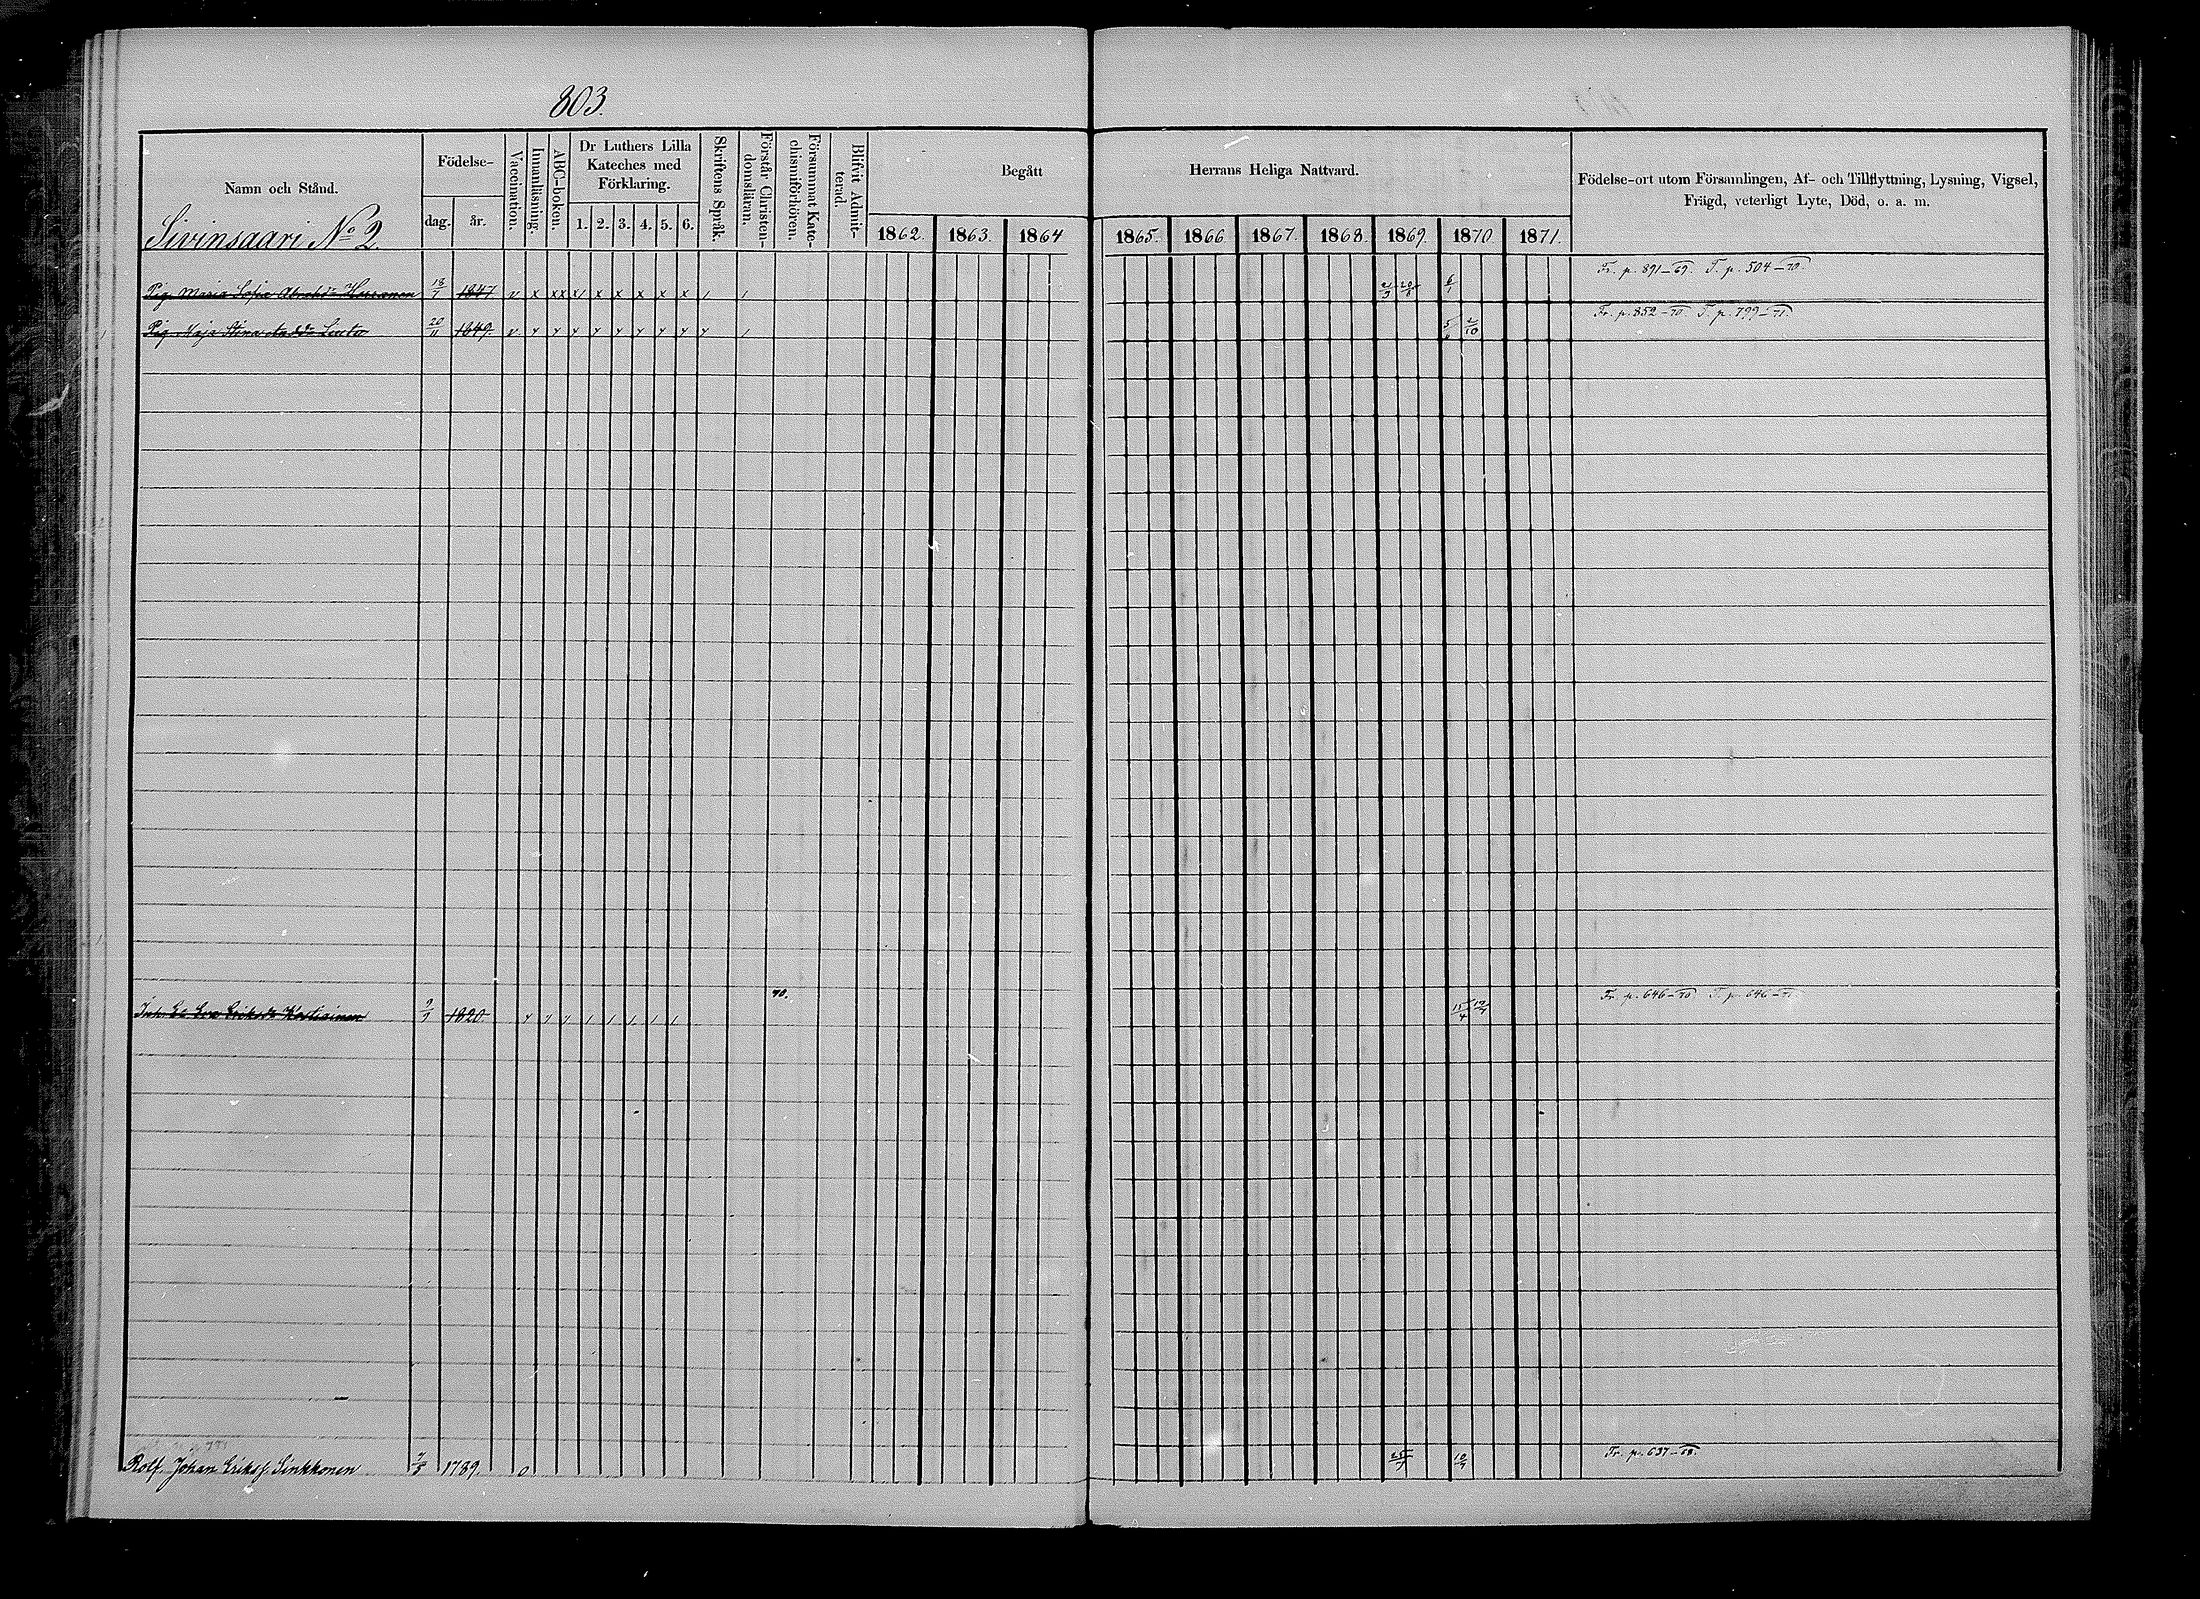 803.
Namn och Stånd.
Födelse-
dag.
år.
Vaccination.
Innanläsning.
ABC-boken.
Dr Luthers Lilla
Kateches med
Förklaring.
1. 2. 3. 4. 5. 6.
Skriftens Språk.
Förstår Christen-
domsläran.
Försummat Kate-
chismiförhören.
Blifvit Admit-
terad
Begått Herrans Heliga Nattvard.
1862. 1863. 1864 1865. 1866 1867. 1868. 1869. 1870. 1871.
Födelse-ort utom Församlingen, Af- och Tillflyttning, Lysning, Vigsel,
Fräjd, veterligt Lyte, Död, o. a. m.
Sivinsaari No 2.
Pig. Maria Sofia 18/7 1847 v x xx x1 x x x x x 1 1 20/8 6/1 Fr. p. 891-69. T. p. 504-70.
Pig. Maja Stina 20/11 1849. v y y y y y y y y y 1 5/6 2/10 Fr. p. 852-70 T. p. 799-71.
Eva Eriksdr 9/9 1820 70. 15/4 Fr. p. 646-70 T. p. 646-71
Rolf. Johan Erikss. Sinkkonen 1789. 0 25/7 10/7 Fr. p. 637-68.